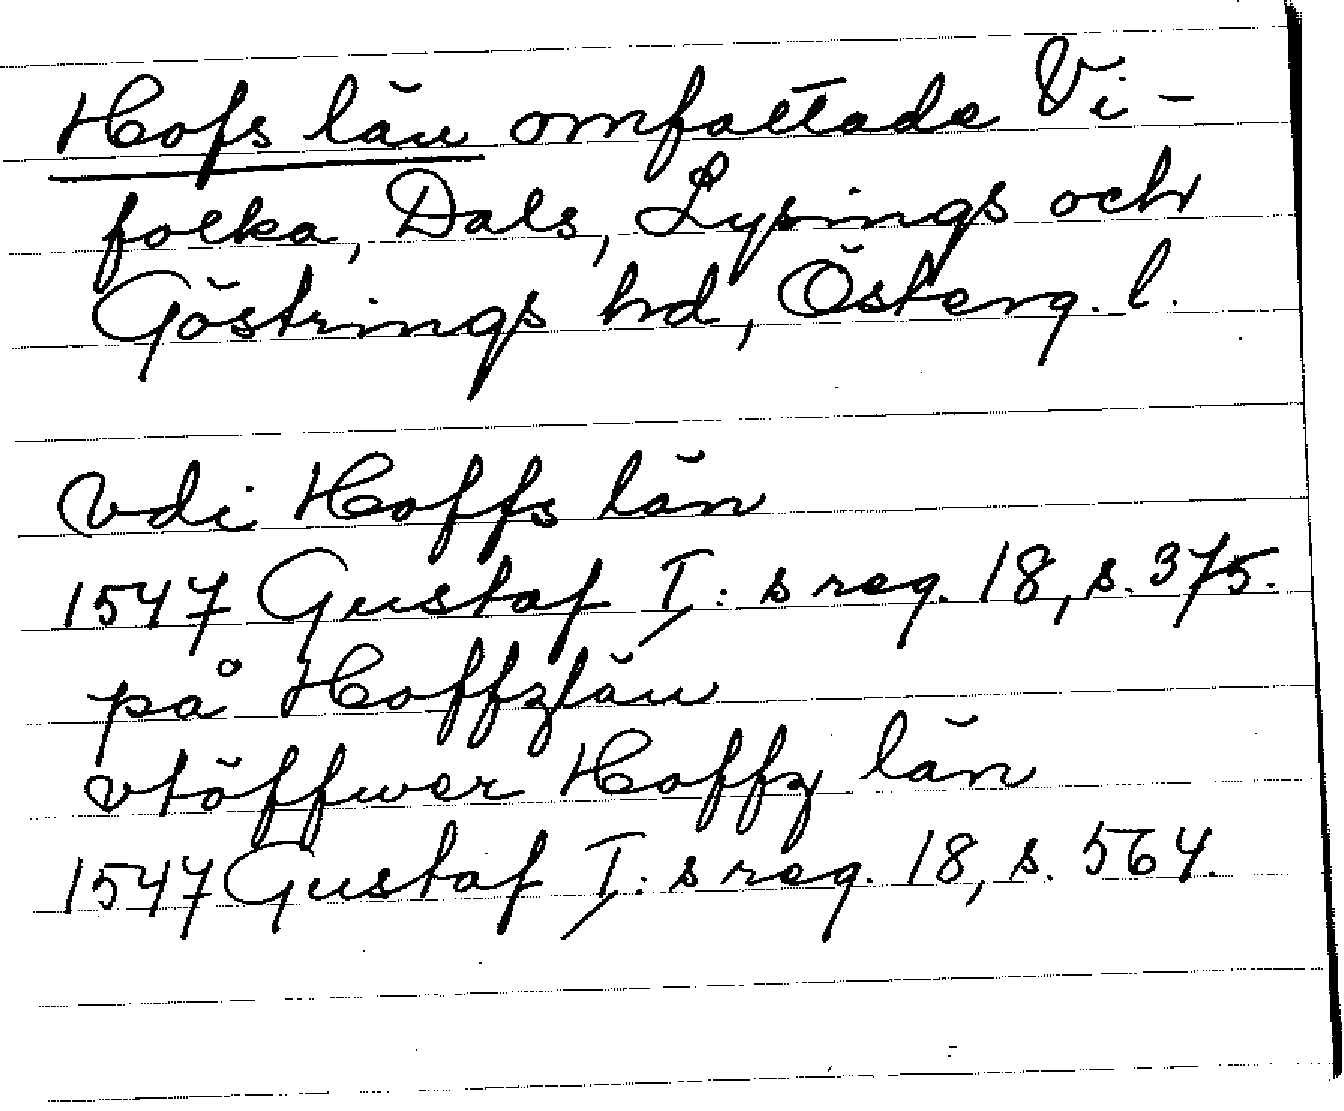 Hofs län omfattade Vi-
folka, Dals, Lysings och
Göstrings hd, Österg. l.
vdi Hoffs län
1547 Gustaf I:s reg. 18, s. 375.
på Hoffzlän
vtöffwer Hoffz län
1547 Gustaf I:s reg. 18, s. 564.